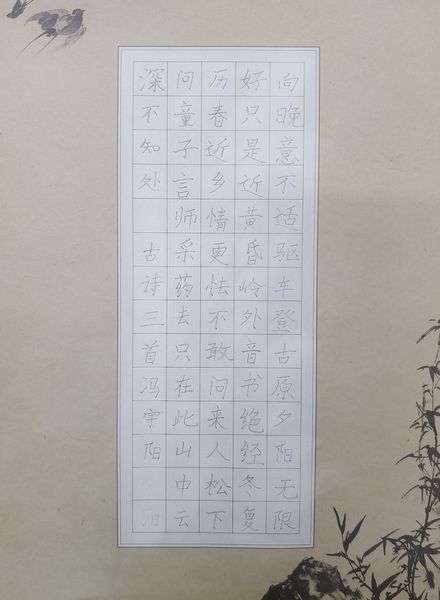 向晚意不适驱车登古原夕阳无限
好只是近黄昏岭外音书绝经冬复
历春近乡情更怯不敢问来人松下
问童子言师采药去只在此山中云
深不知处 古诗三首冯宇阳